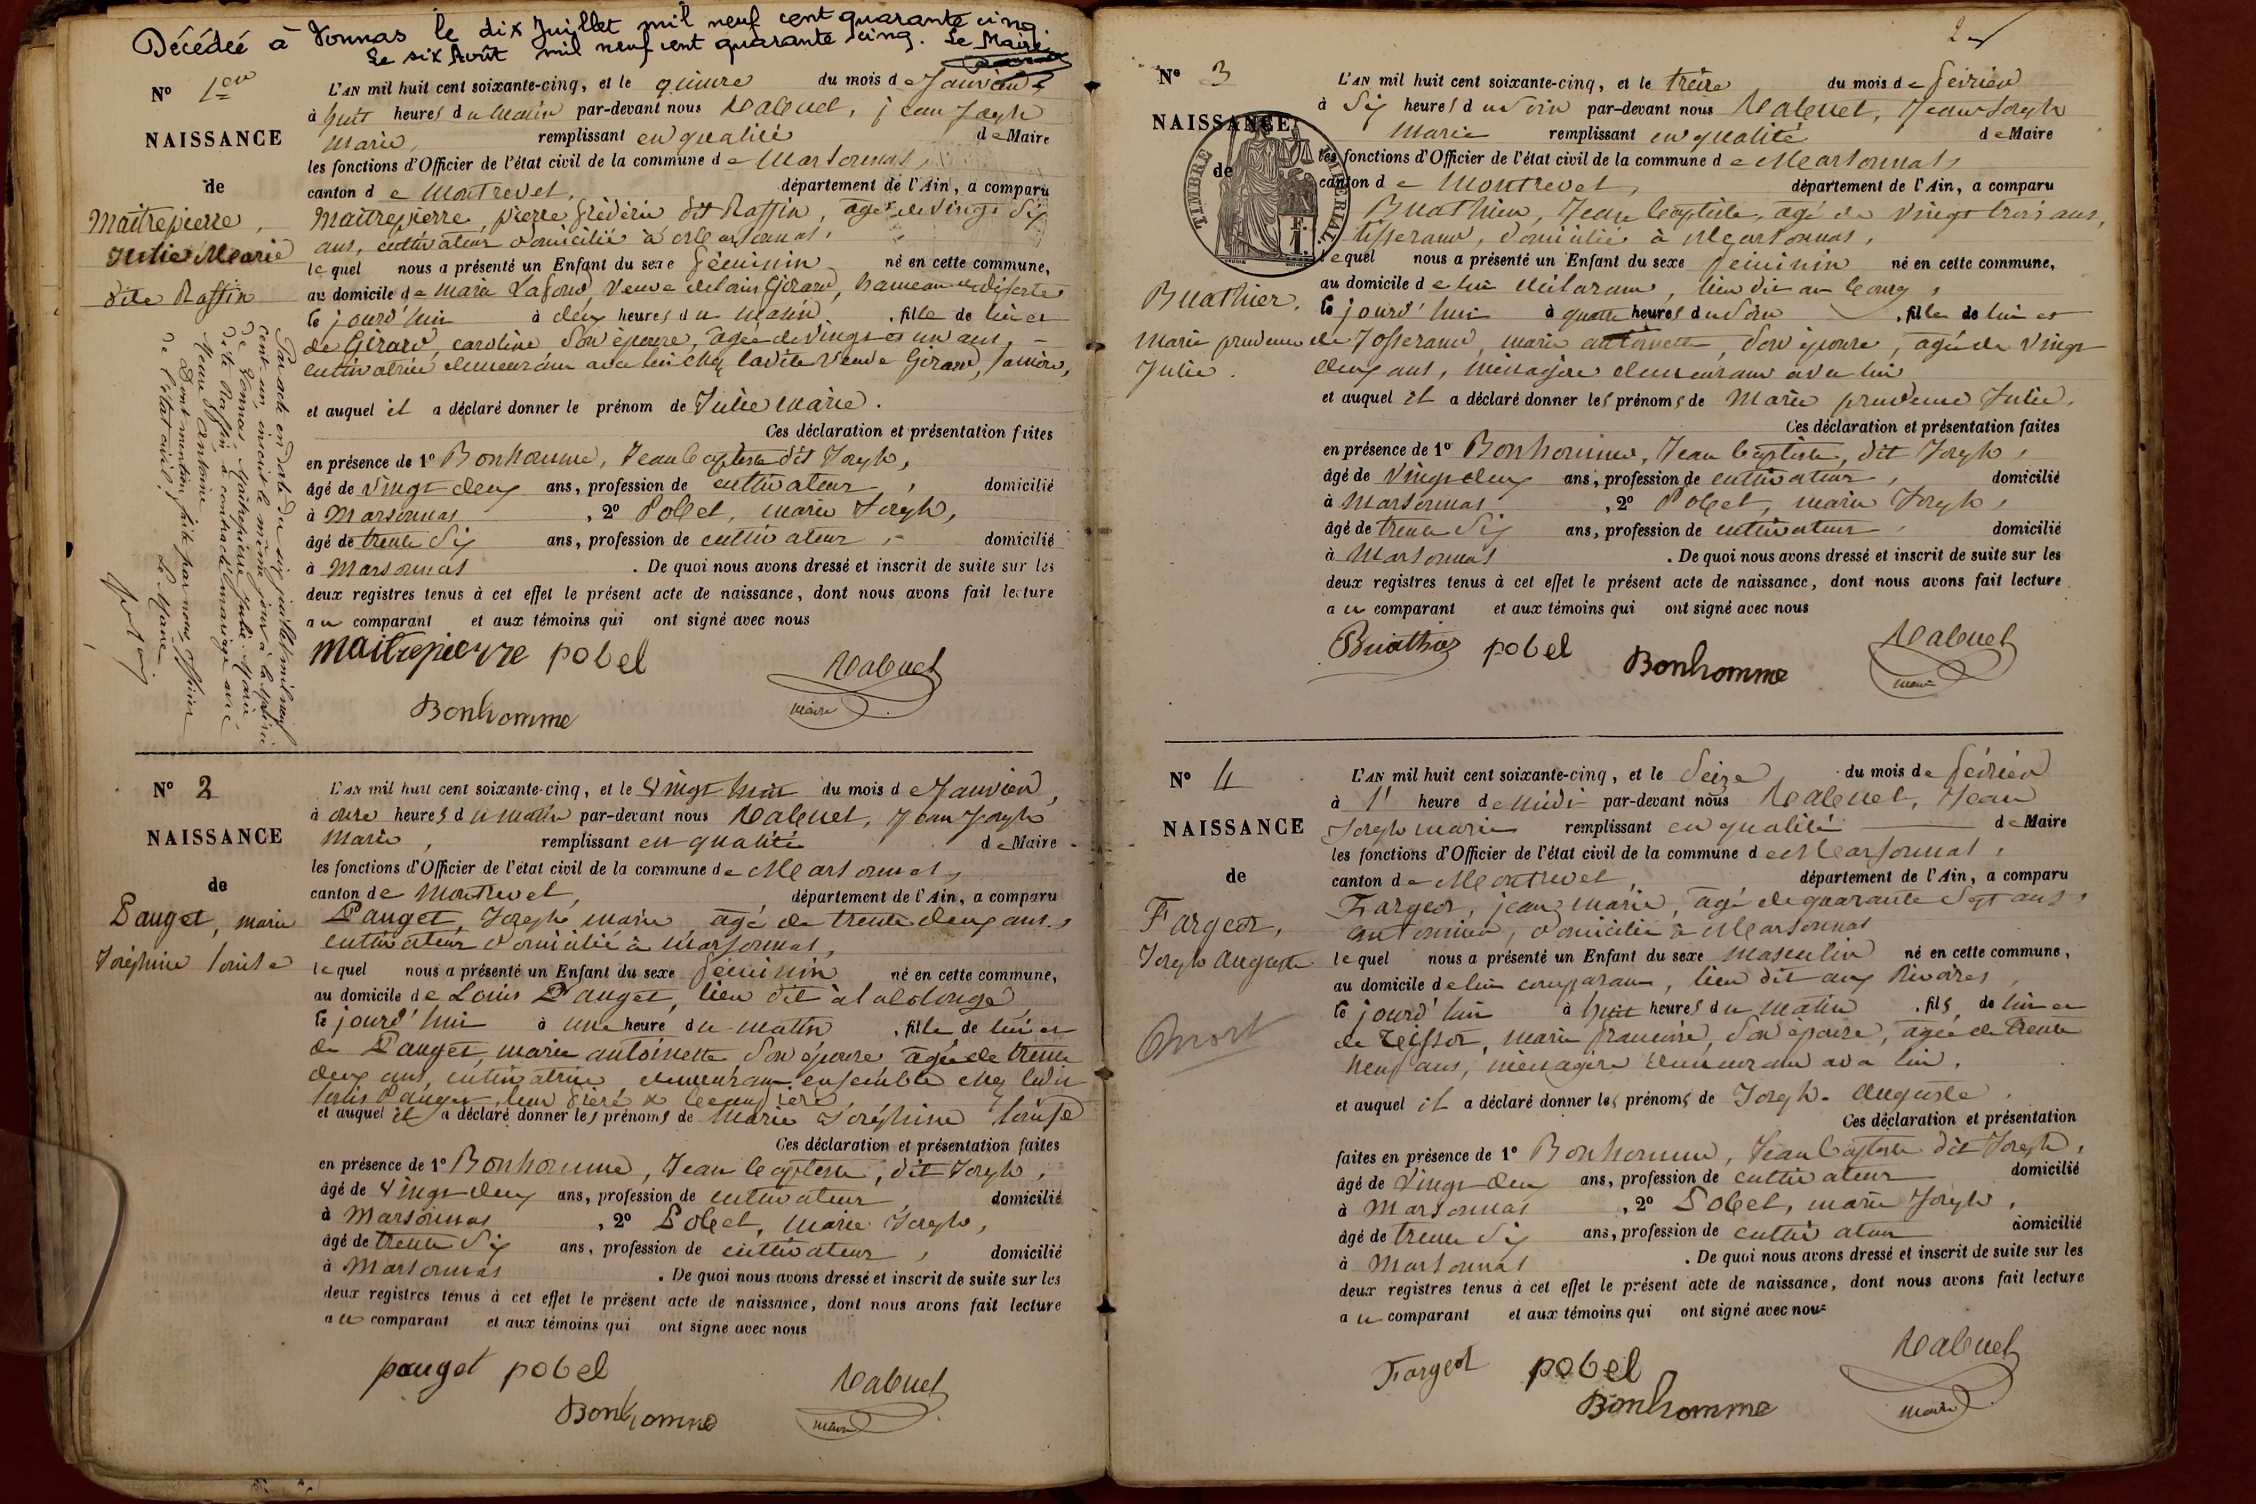 Décédée à Vonnas le dix Juillet mil neuf cent quarante cinq.
Le six Août mil neuf cent quarante cinq. Le Maire
N° 1er
NAISSANCE
de
Maitrepierre,
Julie Marie
dite Raffin
L'AN mil huit cent soixante-cinq, et le quinze du mois de Janvier
à huit heures du matin par-devant nous Rabuel, jean Joseph
marie, remplissant en qualité de Maire
les fonctions d'Officier de l'état civil de la commune de Marsonnas,
canton de Montrevel, département de l'Ain, a comparu
Maitrepierre, pierre frédéric dit Raffin, agé de vingt six
ans, cultivateur domicilié à Marsonnas,
lequel nous a présenté un Enfant du sexe féminin né en cette commune,
au domicile de marie Lafond, veuve de Louis Girard, hameau
le jourd'hui à deux heures du matin, fille de lui et
de Girard, caroline son épouse, agée de vingt et un ans,
cultivatrice demeurant avec lui chez ladite veuve Girard,
et auquel il a déclaré donner le prénom de Julie marie.
Ces déclaration et présentation faites
en présence de 1° Bonhomme, Jean baptiste dit Joseph,
âgé de vingt deux ans, profession de cultivateur, domicilié
à Marsonnas, 2° Pobel, marie Joseph,
âgé de trente six ans, profession de cultivateur, domicilié
à Marsonnas. De quoi nous avons dressé et inscrit de suite sur les
deux registres tenus à cet effet le présent acte de naissance, dont nous avons fait lecture
au comparant et aux témoins qui ont signé avec nous
maitrepierre pobel Rabuel
Bonhomme maire
Par acte en date du six juillet mil neuf
cent un, inscrit le même jour à la Mairie
de Vonnas Maitrepierre Julie Marie
dite Raffin, a contracté mariage avec
Dont mention faite par nous, Officier
de l'état civil. Le Maire
N° 2
NAISSANCE
de
Pauget, marie
Joséphine louise
L'AN mil huit cent soixante-cinq, et le vingt huit du mois de Janvier,
à onze heures du matin par-devant nous Rabuel, Jean Joseph
marie, remplissant en qualité de Maire
les fonctions d'Officier de l'état civil de la commune de Marsonnas,
canton de Montrevel, département de l'Ain, a comparu
Pauget, Joseph marie, agé de trente deux ans,
cultivateur domicilié à Marsonnas,
lequel nous a présenté un Enfant du sexe féminin né en cette commune,
au domicile de Louis Pauget, lieu dit
le jourd'hui à une heure du matin, fille de lui et
de Pauget, marie antoinette son épouse agée de trente
deux ans, cultivatrice, demeurant ensemble chez ledit
louis Pauget, leur
et auquel il a déclaré donner les prénoms de Marie Joséphine louise
Ces déclaration et présentation faites
en présence de 1° Bonhomme, Jean baptiste, dit Joseph,
âgé de vingt deux ans, profession de cultivateur domicilié
à Marsonnas, 2° Pobel, marie Joseph,
âgé de trente six ans, profession de cultivateur, domicilié
à Marsonnas. De quoi nous avons dressé et inscrit de suite sur les
deux registres tenus à cet effet le présent acte de naissance, dont nous avons fait lecture
au comparant et aux témoins qui ont signé avec nous
pauget pobel Rabuel
Bonhomme maire
2
N° 3
NAISSANCE
de
TIMBRE IMPÉRIAL
F. 1.
Buathier,
marie prudence
Julie.
L'AN mil huit cent soixante-cinq, et le treize du mois de février
à six heures du soir par-devant nous Rabuel, Jean Joseph
Marie remplissant en qualité de Maire
les fonctions d'Officier de l'état civil de la commune de Marsonnas,
canton de Montrevel, département de l'Ain, a comparu
Buathier, Jean baptiste, agé de vingt trois ans,
tisserand, domicilié à Marsonnas,
lequel nous a présenté un Enfant du sexe féminin né en cette commune,
au domicile de lui déclarant, lieu dit au bourg,
le jourd'hui à quatre heures du soir, fille de lui et
de Josserand, marie antoinette, son épouse, agée de vingt
deux ans, ménagère demeurant avec lui
et auquel il a déclaré donner les prénoms de Marie prudence Julie.
Ces déclaration et présentation faites
en présence de 1° Bonhomme, Jean baptiste, dit Joseph,
âgé de vingt deux ans, profession de cultivateur, domicilié
à Marsonnas, 2° Pobel, marie Joseph,
âgé de trente six ans, profession de cultivateur, domicilié
à Marsonnas. De quoi nous avons dressé et inscrit de suite sur les
deux registres tenus à cet effet le présent acte de naissance, dont nous avons fait lecture
au comparant et aux témoins qui ont signé avec nous
Buathier pobel Bonhomme Rabuel
maire
N° 4
NAISSANCE
de
Fargeot,
Joseph auguste
Mort
L'AN mil huit cent soixante-cinq, et le seize du mois de février
à 1 heure de midi par-devant nous Rabuel, Jean
Joseph marie remplissant en qualité de Maire
les fonctions d'Officier de l'état civil de la commune de Marsonnas,
canton de Montrevel, département de l'Ain, a comparu
Fargeot, jean marie, agé de quarante sept ans,
domicilié à Marsonnas
lequel nous a présenté un Enfant du sexe masculin né en cette commune,
au domicile de lui comparant, lieu dit aux Rivoires,
le jourd'hui à huit heures du matin, fils de lui et
de Teissot, marie françoise, son épouse, agée de trente
neuf ans, ménagère demeurant avec lui,
et auquel il a déclaré donner les prénoms de Joseph auguste,
Ces déclaration et présentation
faites en présence de 1° Bonhomme, Jean baptiste dit Joseph,
âgé de vingt deux ans, profession de cultivateur domicilié
à Marsonnas, 2° Pobel, marie Joseph,
âgé de trente six ans, profession de cultivateur domicilié
à Marsonnas. De quoi nous avons dressé et inscrit de suite sur les
deux registres tenus à cet effet le présent acte de naissance, dont nous avons fait lecture
au comparant et aux témoins qui ont signé avec nous
Fargeot pobel Rabuel
Bonhomme maire